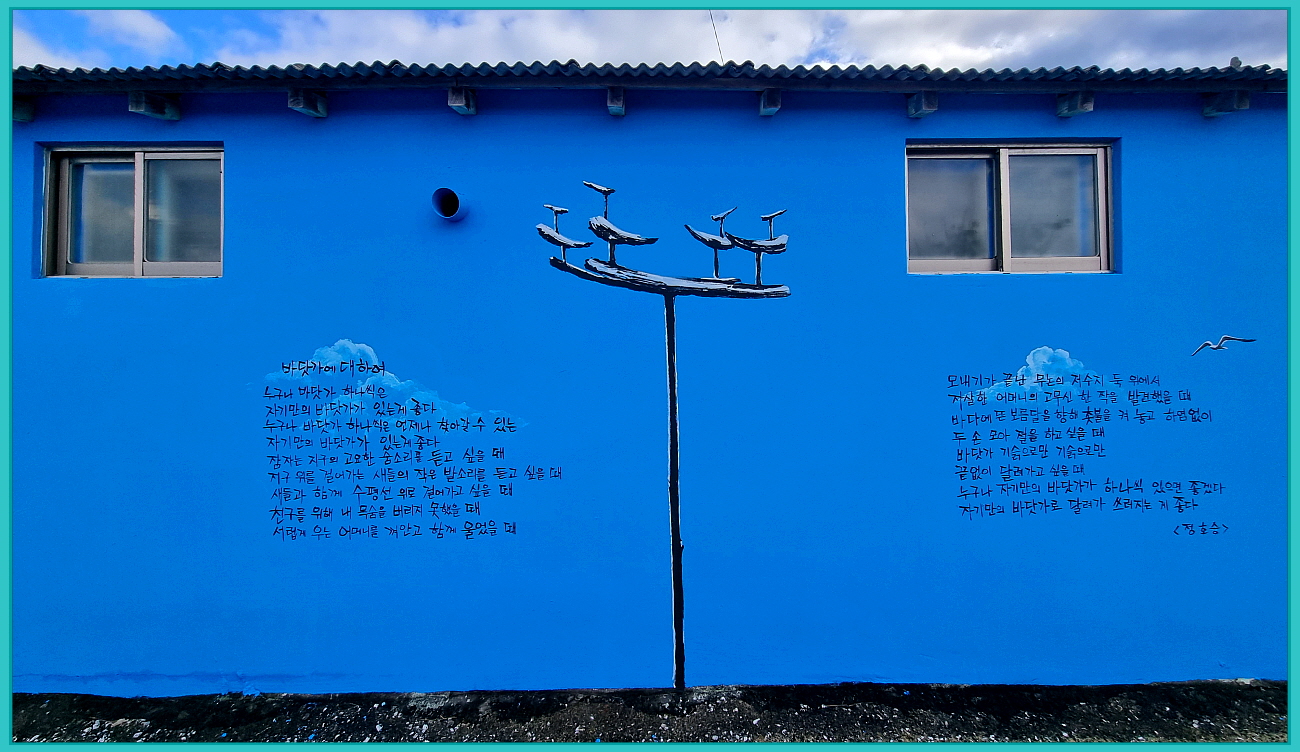 바닷가에 대하여
누구나 바닷가 하나씩은
자기만의 바닷가가 있는게 좋다
누구나 바닷가 하나씩은 언제나 찾아갈 수 있는
자기만의 바닷가가 있는게 좋다
잠자는 지구의 고요한 숨소리를 듣고 싶을 때
지구 위를 걸어가는 새들의 작은 발소리를 듣고 싶을 때
새들과 함께 수평선 위로 걸어가고 싶을 때
친구를 위해 내 목숨을 버리지 못했을 때
서럽게 우는 어머니를 껴안고 함께 울었을 때
모내기가 끝난 무논의 저수지 둑 위에서
자살한 어머니의 고무신 한 짝을 발견했을 때
바다에 뜬 보름달을 향해 촛불을 켜 놓고 하염없이
두 손 모아 절을 하고 싶을 때
바닷가 기슭으로만 기슭으로만
끝없이 달려가고 싶을 때
누구나 자기만의 바닷가가 하나씩 있으면 좋겠다
자기만의 바닷가로 달려가 쓰러지는 게 좋다
<정호승>